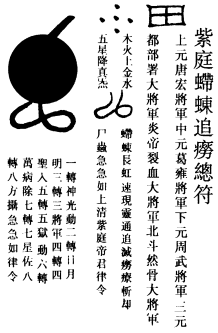 紫庭螮蝀追癆總符
上元唐宏將軍中元葛雍將軍下元周武將軍三元
都部署大將軍炎帝裂血大將軍北斗然骨大將軍
木火土金水
螮蝀長虹速現靈通追滅癆瘵斬却
五星降真炁
尸蟲急急如上清紫庭帝君律令
一轉神光動二轉日月
明三轉三將軍四轉四
聖入五轉五獄動六轉
萬病除七轉七星佐八
轉八方攝急急如律令